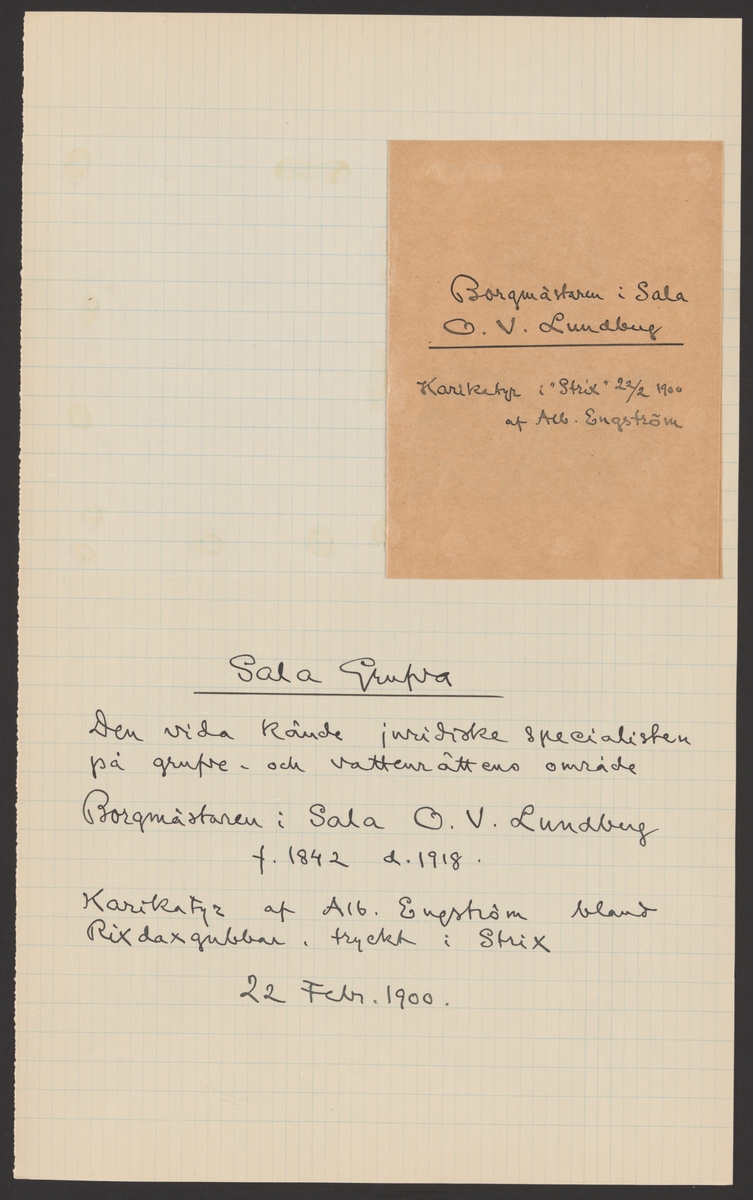 Borgmästaren i Sala
O. V. Lundberg
Karikatyr i "Strix" 22/2 1900
af Alb. Engström
Sala Grufva
Den vida kände juridiske specialisten
på grufve- och vattenrättens område
Borgmästaren i Sala O. V. Lundberg
f. 1842 d. 1918.
Karikatyr af Alb. Engström bland
Rixdaxgubbar, tryckt i Strix
22 Febr. 1900.